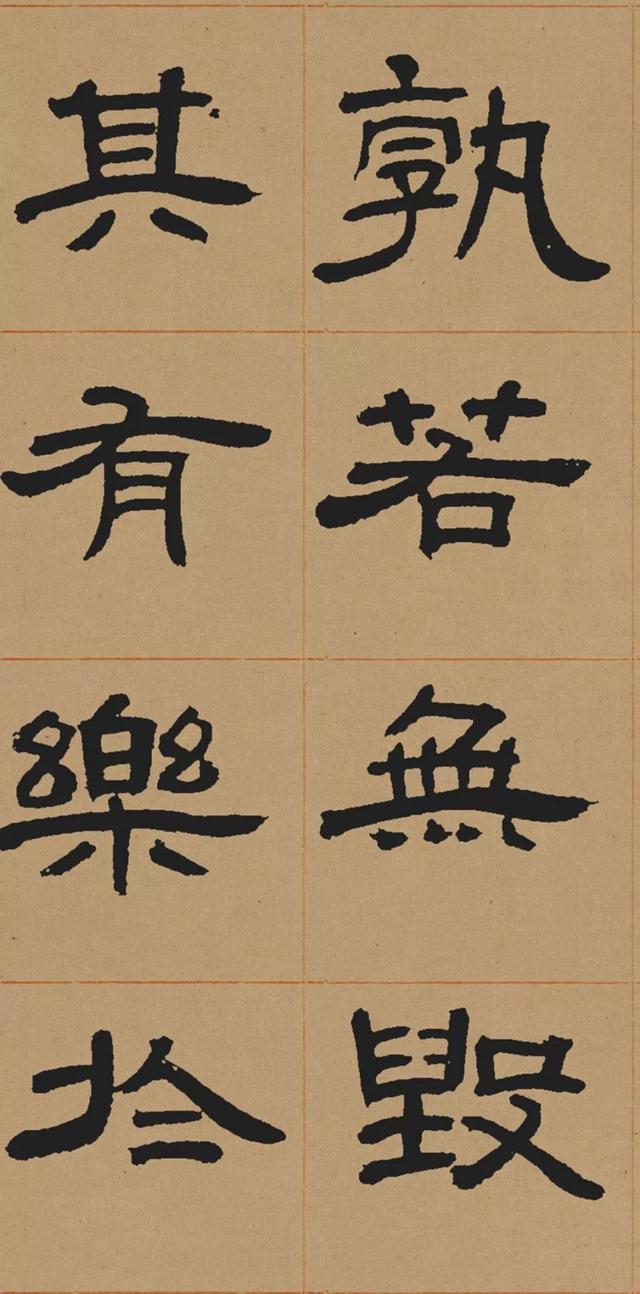 孰若無毀
其有樂於